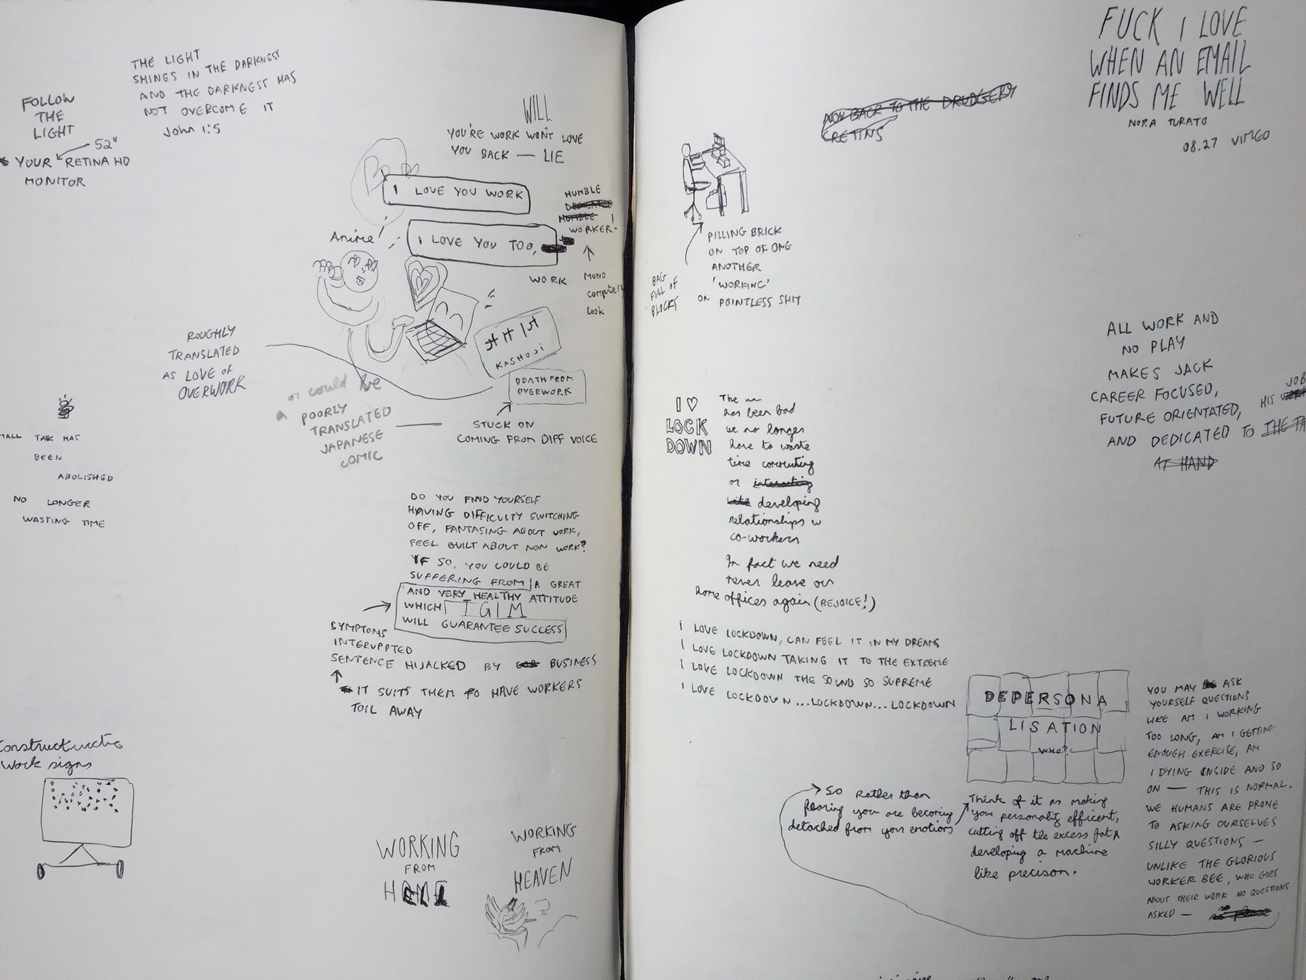 THE LIGHT
SHINES IN THE DARKNESS
AND THE DARKNESS HAS
NOT OVERCOME IT
John 1:5
FOLLOW
THE
LIGHT
52"
YOUR RETINA HD
MONITOR
WILL
YOU'RE WORK WON'T LOVE
YOU BACK — LIE
I LOVE YOU WORK
I LOVE YOU TOO,
HUMBLE
HUMBLE
WORKER.
WORK
MONO
Look
Anime
KASHOJI
DEATH FROM
OVERWORK
ROUGHLY
TRANSLATED
AS LOVE OF
OVERWORK
or could be
a POORLY
TRANSLATED
JAPANESE
COMIC
STUCK ON
COMING FROM DIFF VOICE
MALL TALK HAS
BEEN
ABOLISHED
NO LONGER
WASTING TIME
DO YOU FIND YOURSELF
HAVING DIFFICULTY SWITCHING
OFF, FANTASING ABOUT WORK,
FEEL GUILT ABOUT NON WORK?
IF SO, YOU COULD BE
SUFFERING FROM A GREAT
AND VERY HEALTHY ATTITUDE
WHICH
WILL GUARANTEE SUCCESS
SYMPTOMS
INTERUPPTED
SENTENCE HIJACKED BY BUSINESS
IT SUITS THEM TO HAVE WORKERS
TOIL AWAY
work signs
WORKING
FROM
WORKING
FROM
HEAVEN
FUCK I LOVE
WHEN AN EMAIL
FINDS ME WELL
NORA TURATO
08.27 VIMEO
NOW BACK TO THE DRUDGERY
CRETINS
PILLING BRICK
ON TOP OF ONE
ANOTHER
'WORKING'
ON POINTLESS SHIT
BAG
FULL OF
BLOCKS
ALL WORK AND
NO PLAY
MAKES JACK
CAREER FOCUSED,
FUTURE ORIENTATED, HIS JOB
AND DEDICATED TO THE
AT HAND
I ♡
LOCK
DOWN
The
has been bad
we no longer
have to waste
time commuting
or interacting
developing
relationships w
co-workers
In fact we need
never leave our
home offices again (REJOICE!)
I LOVE LOCKDOWN, CAN FEEL IT IN MY DREAMS
I LOVE LOCKDOWN TAKING IT TO THE EXTREME
I LOVE LOCKDOWN THE SOUND SO SUPREME
I LOVE LOCKDOWN...LOCKDOWN...LOCKDOWN
DEPERSONA
LISATION
WHO?
SO Rather than
fearing you are becoming
detached from your emotions
Think of it as making
your personality efficient,
cutting off the excess fat &
developing a machine
like precison.
YOU MAY ASK
YOURSELF QUESTIONS
LIKE AM I WORKING
TOO LONG, AM I GETTING
ENOUGH EXERCISE, AM
I DYING INSIDE AND SO
ON — THIS IS NORMAL.
WE HUMANS ARE PRONE
TO ASKING OURSELVES
SILLY QUESTIONS —
UNLIKE THE GLORIOUS
WORKER BEE, WHO GOES
ABOUT THEIR WORK NO QUESTIONS
ASKED —